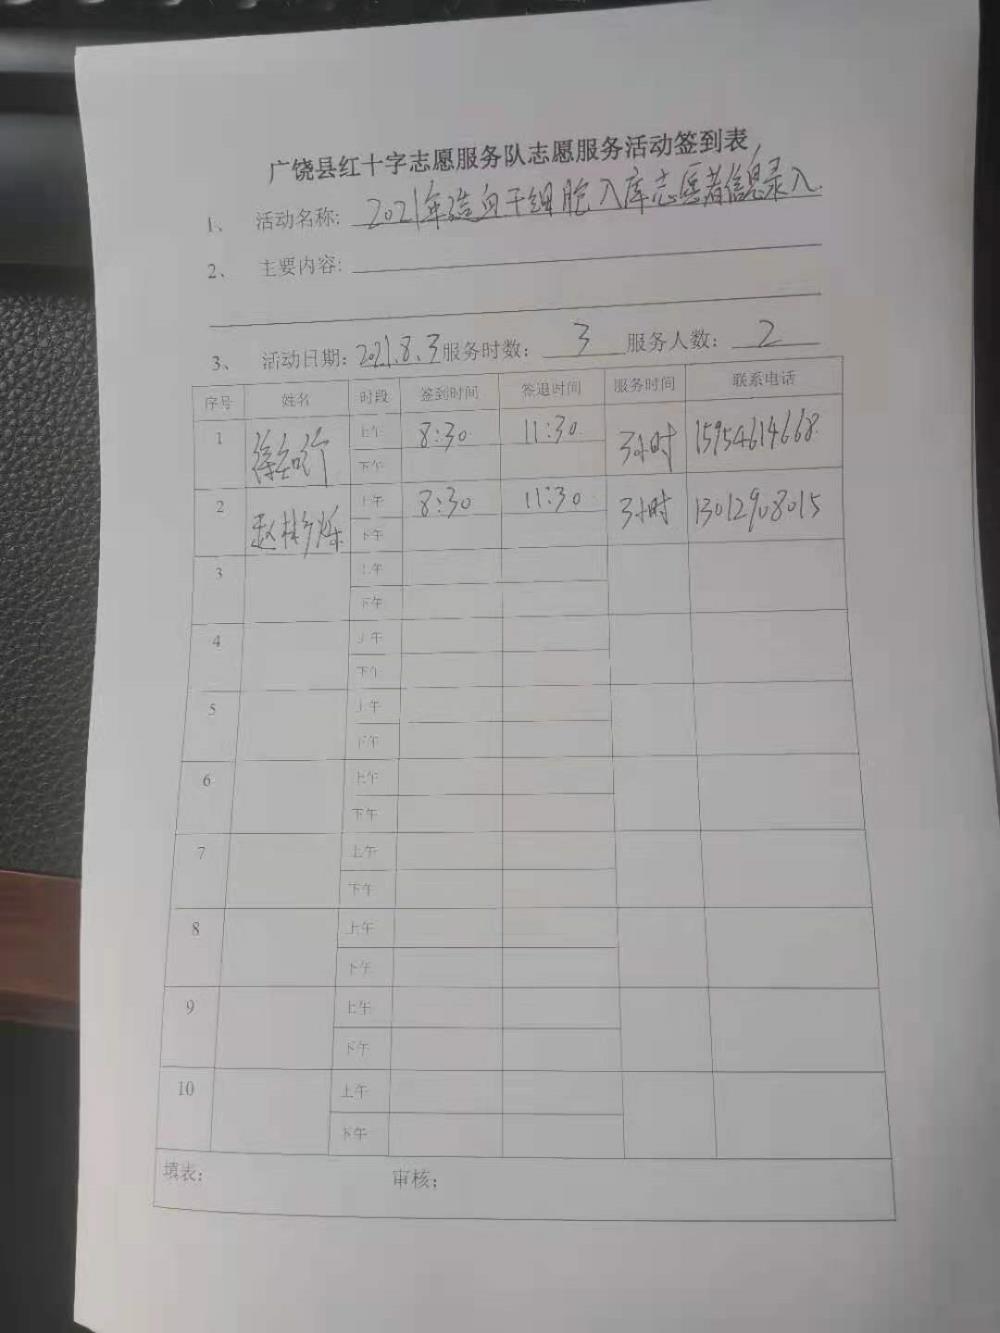 广饶县红十字志愿服务队志愿服务活动签到表
1、 活动名称: 2021年造血干细胞入库志愿者信息录入.
2、 主要内容:
3、 活动日期: 2021.8.3 服务时数: 3 服务人数: 2
序号 姓名 时段 签到时间 签退时间 服务时间 联系电话
1 上午 8:30 11:30 3小时 15954614668
下午
2 赵彬烁 上午 8:30 11:30 3小时 13012908015
下午
3 上午
下午
4 上午
下午
5 上午
下午
6 上午
下午
7 上午
下午
8 上午
下午
9 上午
下午
10 上午
下午
填表: 审核: